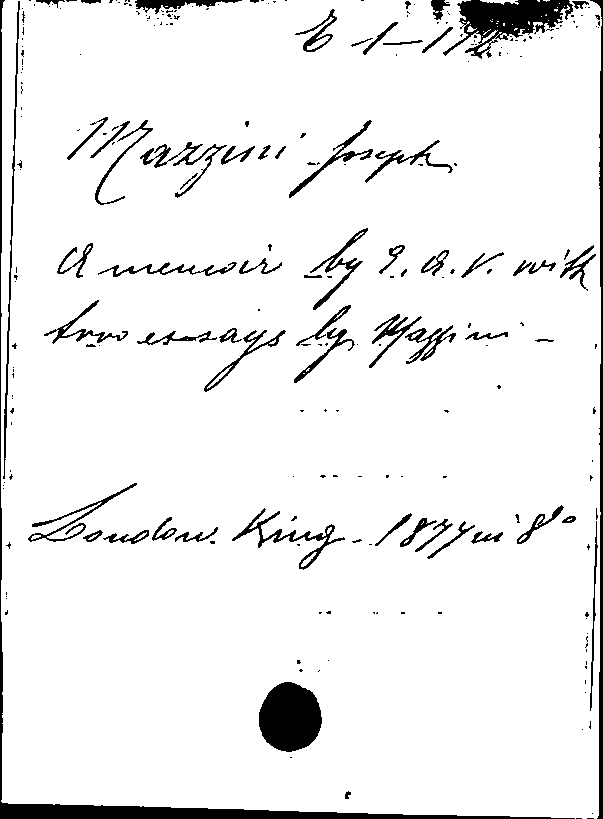 E 1-112
Mazzini Joseph
A memoir by E. A. V. with
two essays by Mazzini -
London. King - 1877 in 8°